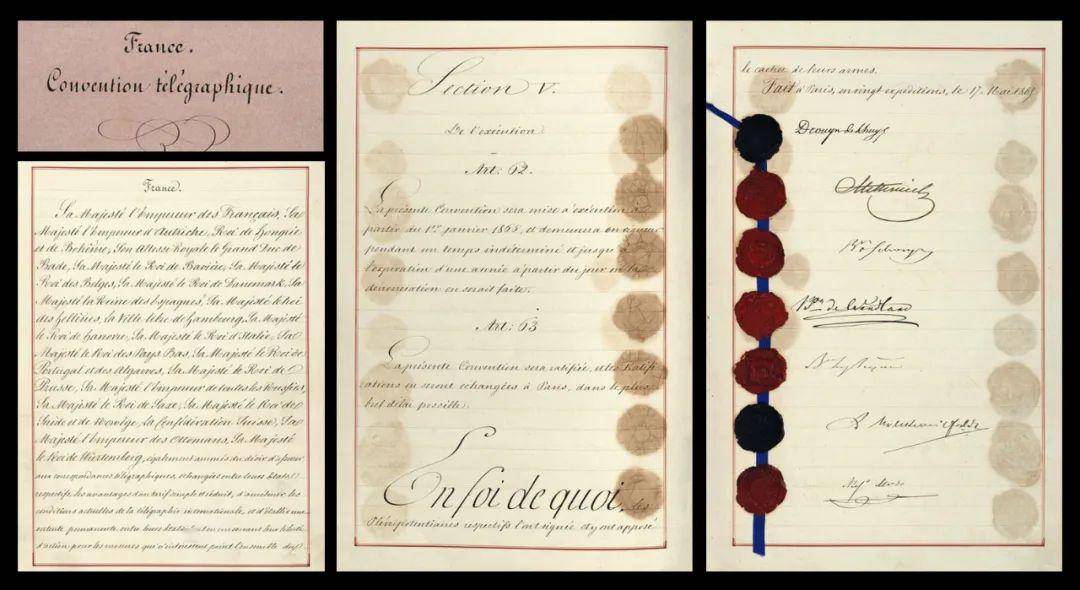 France.
Convention télégraphique.
France.
Sa Majesté l'Empereur des Français, Sa
Majesté l'Empereur d'Autriche, Roi de Hongrie
et de Bohême, Son Altesse Royale le Grand Duc de
Bade, Sa Majesté le Roi de Bavière, Sa Majesté le
Roi des Belges, Sa Majesté le Roi de Danemark, Sa
Majesté la Reine des Espagnes, Sa Majesté le Roi
des Hellènes, la Ville libre de Hambourg, Sa Majesté
le Roi de Hanovre, Sa Majesté le Roi d'Italie, Sa
Majesté le Roi des Pays Bas, Sa Majesté le Roi de
Portugal et des Algarves, Sa Majesté le Roi de
Prusse, Sa Majesté l'Empereur de toutes les Russies,
Sa Majesté le Roi de Saxe, Sa Majesté le Roi de
Suède et de Norwège, la Confédération Suisse, Sa
Majesté l'Empereur des Ottomans, Sa Majesté
le Roi de Wurtemberg, également animés du désir d'assurer
aux correspondances télégraphiques, échangées entre leurs États
respectifs, les avantages d'un tarif simple et réduit, d'améliorer les
conditions actuelles de la télégraphie internationale, et d'établir une
entente permanente entre leurs États, tout en conservant leur liberté
d'action pour les mesures qui n'intéressent point l'ensemble du
Section V.
De l'exécution
Art: 62.
La présente Convention sera mise à exécution à
partir du 1er janvier 1866, et demeurera en vigueur
pendant un temps indéterminé et jusqu'à
l'expiration d'une année à partir du jour où la
dénonciation en serait faite.
Art: 63
La présente Convention sera ratifiée, et les Ratifi
cations en seront échangées à Paris, dans le plus
bref délai possible.
En foi de quoi, les
Plénipotentiaires respectifs l'ont signée et y ont apposé
le cachet de leurs armes.
Fait à Paris, en vingt expéditions, le 17 Mai 1865
Drouyn de Lhuys
Metternich